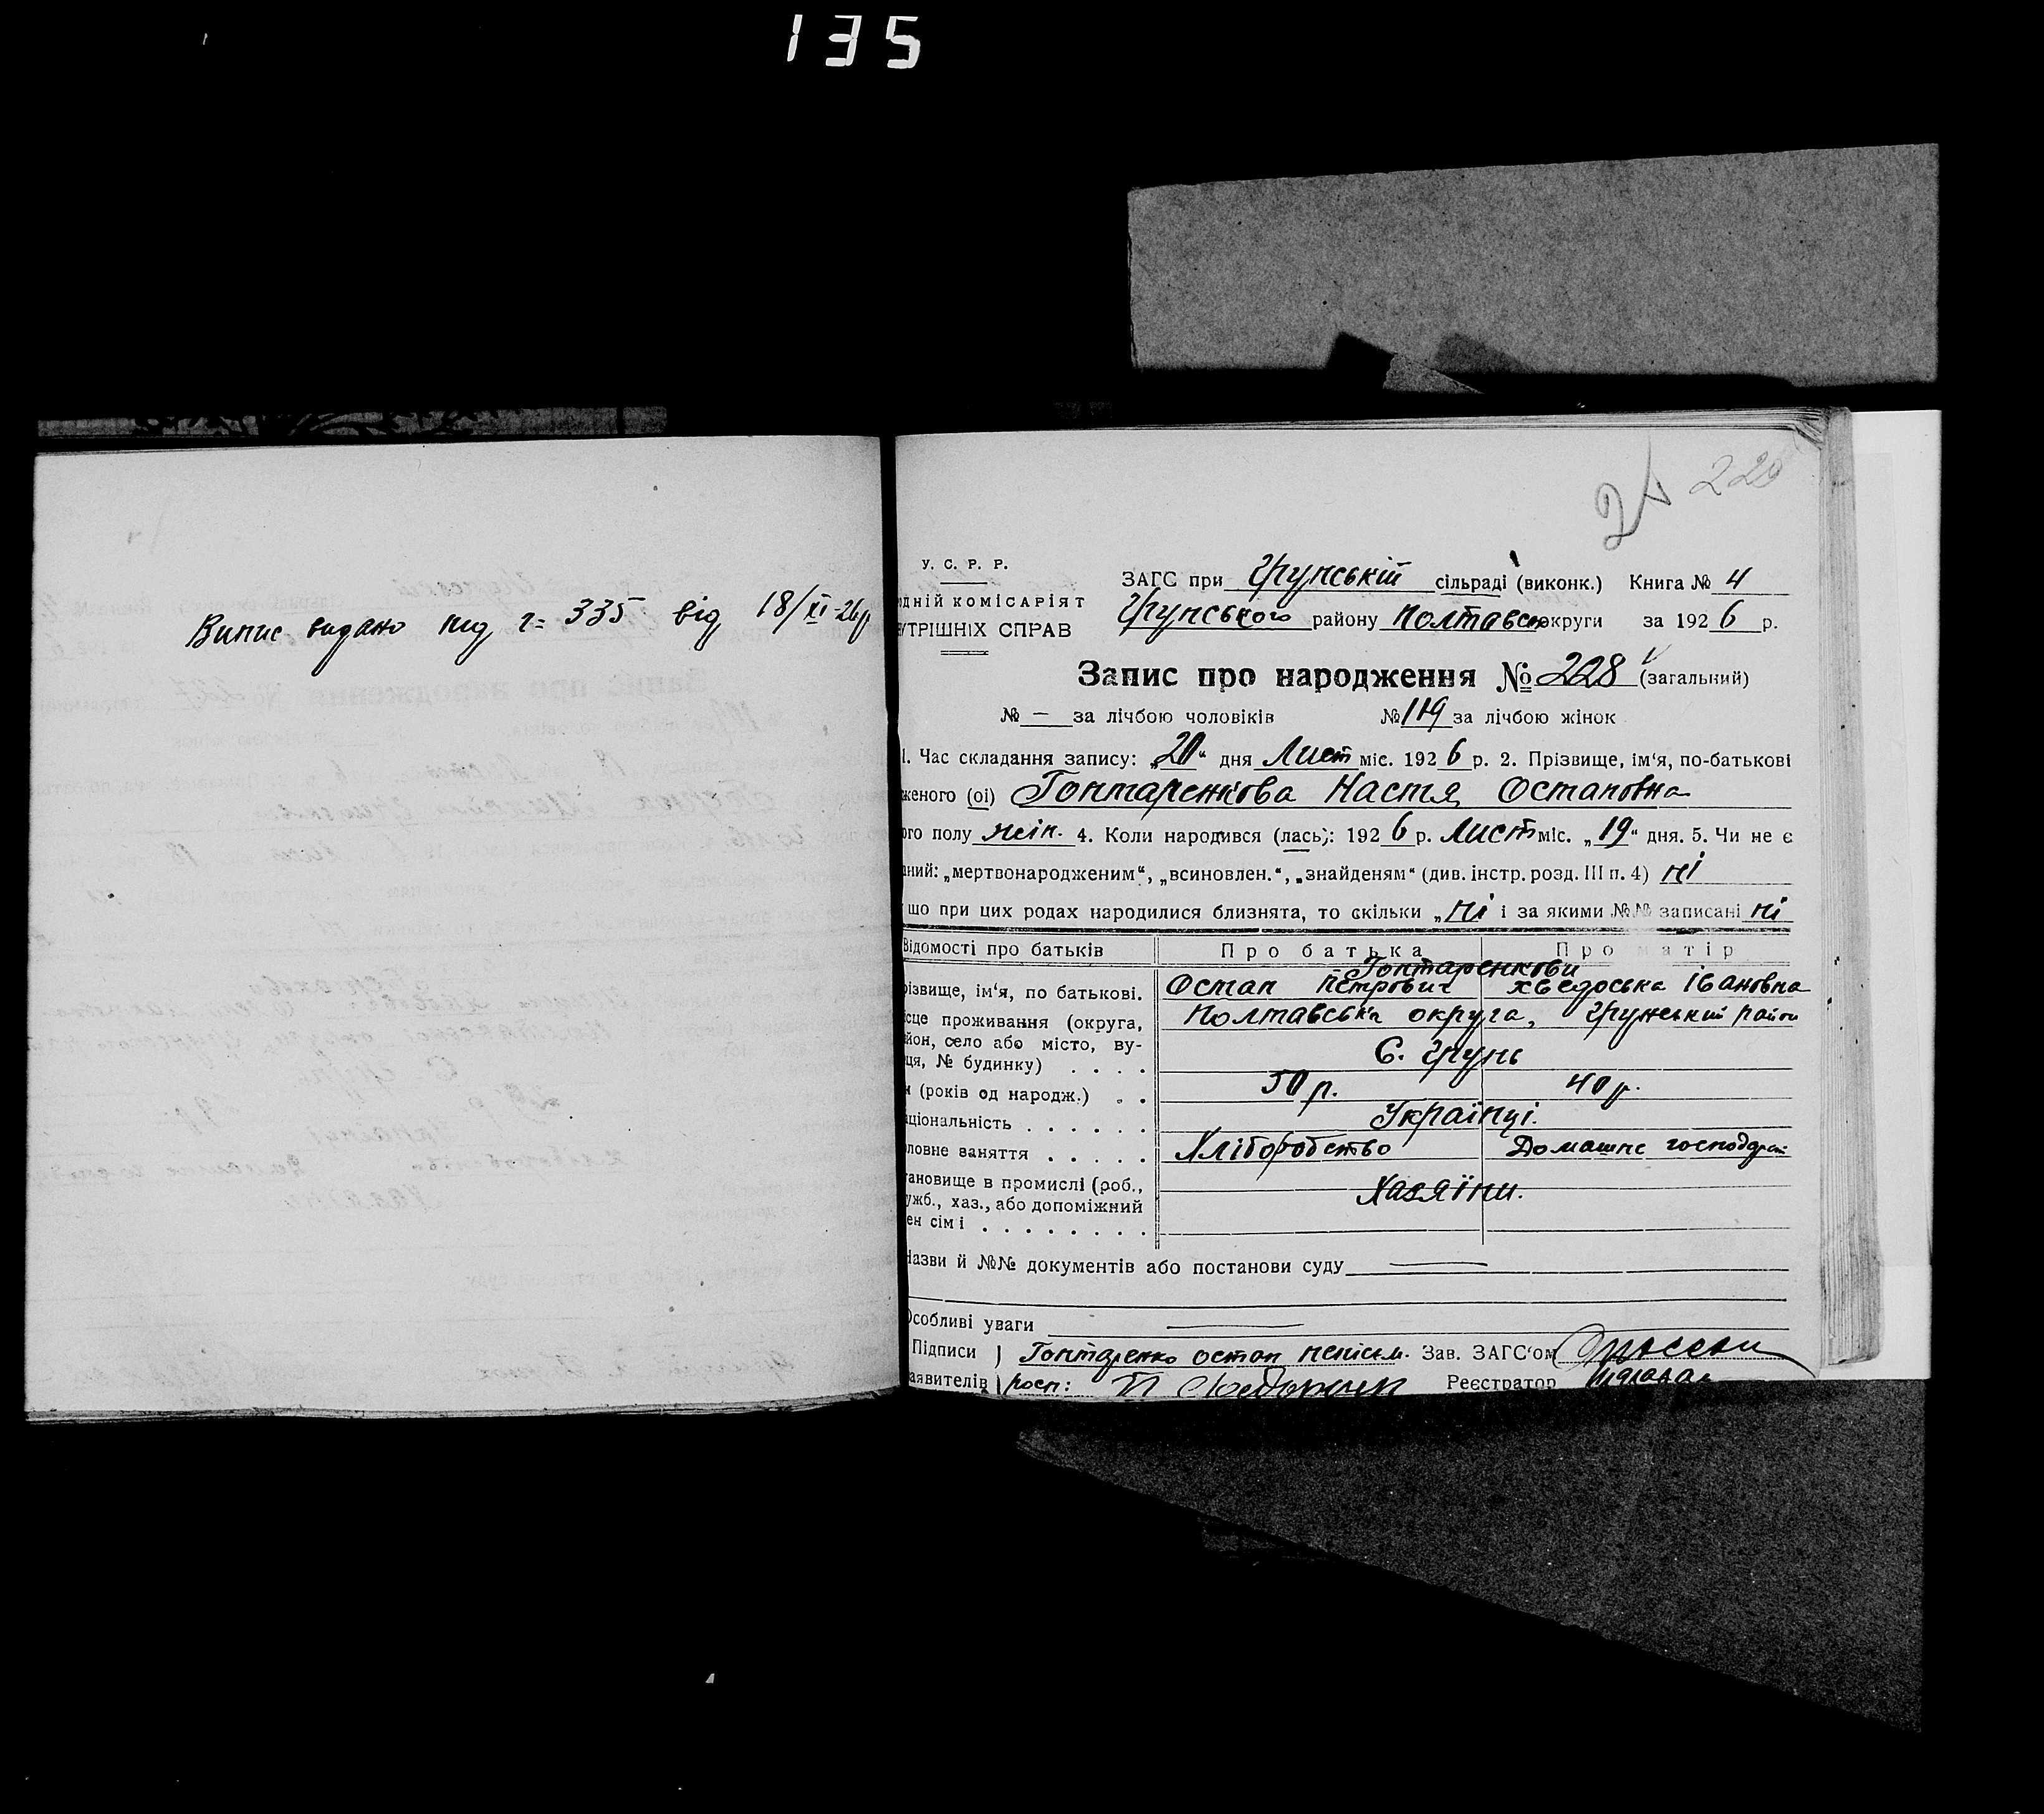 135
Випис видано під № 335 від 18/XI-26р
220
У. С. Р. Р.
ЗАГС при Грунській сільраді (виконк.) Книга № 4
одній комісаріят
Грунського району Полтавсь округи за 1926 р.
утрішніх справ
Запис про народження № 228 (загальний)
№ — за лічбою чоловіків № 119 за лічбою жінок
1. Час складання запису: „20“ дня Лист міс. 1926 р. 2. Прізвище, ім‘я, по-батькові
женого (ої) Гонтаренкова Настя Остаповна
ого полу жін. 4. Коли народився (лась): 1926 р. Лист міс. „19“ дня. 5. Чи не є
аний: „мертвонародженим“, „всиновлен.“, „знайденям“ (див. інстр. розд. III п. 4) ні
що при цих родах народилися близнята, то скільки „ні і за якими №№ записані ні
Відомості про батьків Про батька Про матір
Гонтаренкови
різвище, ім‘я, по батькові. Остап Петрович Хведоська Івановна
ісце проживання (округа, Полтавська округа, Грунський район
йон, село або місто, ву-
ця, № будинку) . . . . С. Грунь
и (років од народж.) . . 50 р. 40 р.
ціональність . . . . . . Українці.
ловне заняття . . . . . Хліборобство Домашнє господ
тановище в промислі (роб., Хазяїни.
ужб., хаз., або допоміжний
ен сім і . . . . . . . .
Назви й №№ документів або постанови суду —
Особливі уваги —
Підписи ) Гонтаренко Остап неписьм. Зав. ЗАГС‘ом
аявителів ) росп: Реєстратор